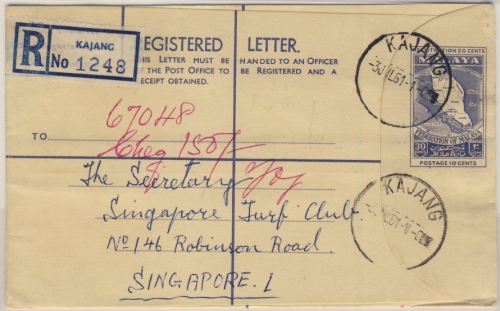 R
KAJANG
No 1248
REGISTERED LETTER.
HIS LETTER MUST BE HANDED TO AN OFFICER
OF THE POST OFFICE TO BE REGISTERED AND A
RECEIPT OBTAINED.
KAJANG
REGISTRATION 20 CENTS
MALAYA
FEDERATION OF MALAYA
30
POSTAGE 10 CENTS
67048
Cheq 150/-
TO
The Secretary
Singapore Turf Club
No 146 Robinson Road.
SINGAPORE. 1
KAJANG